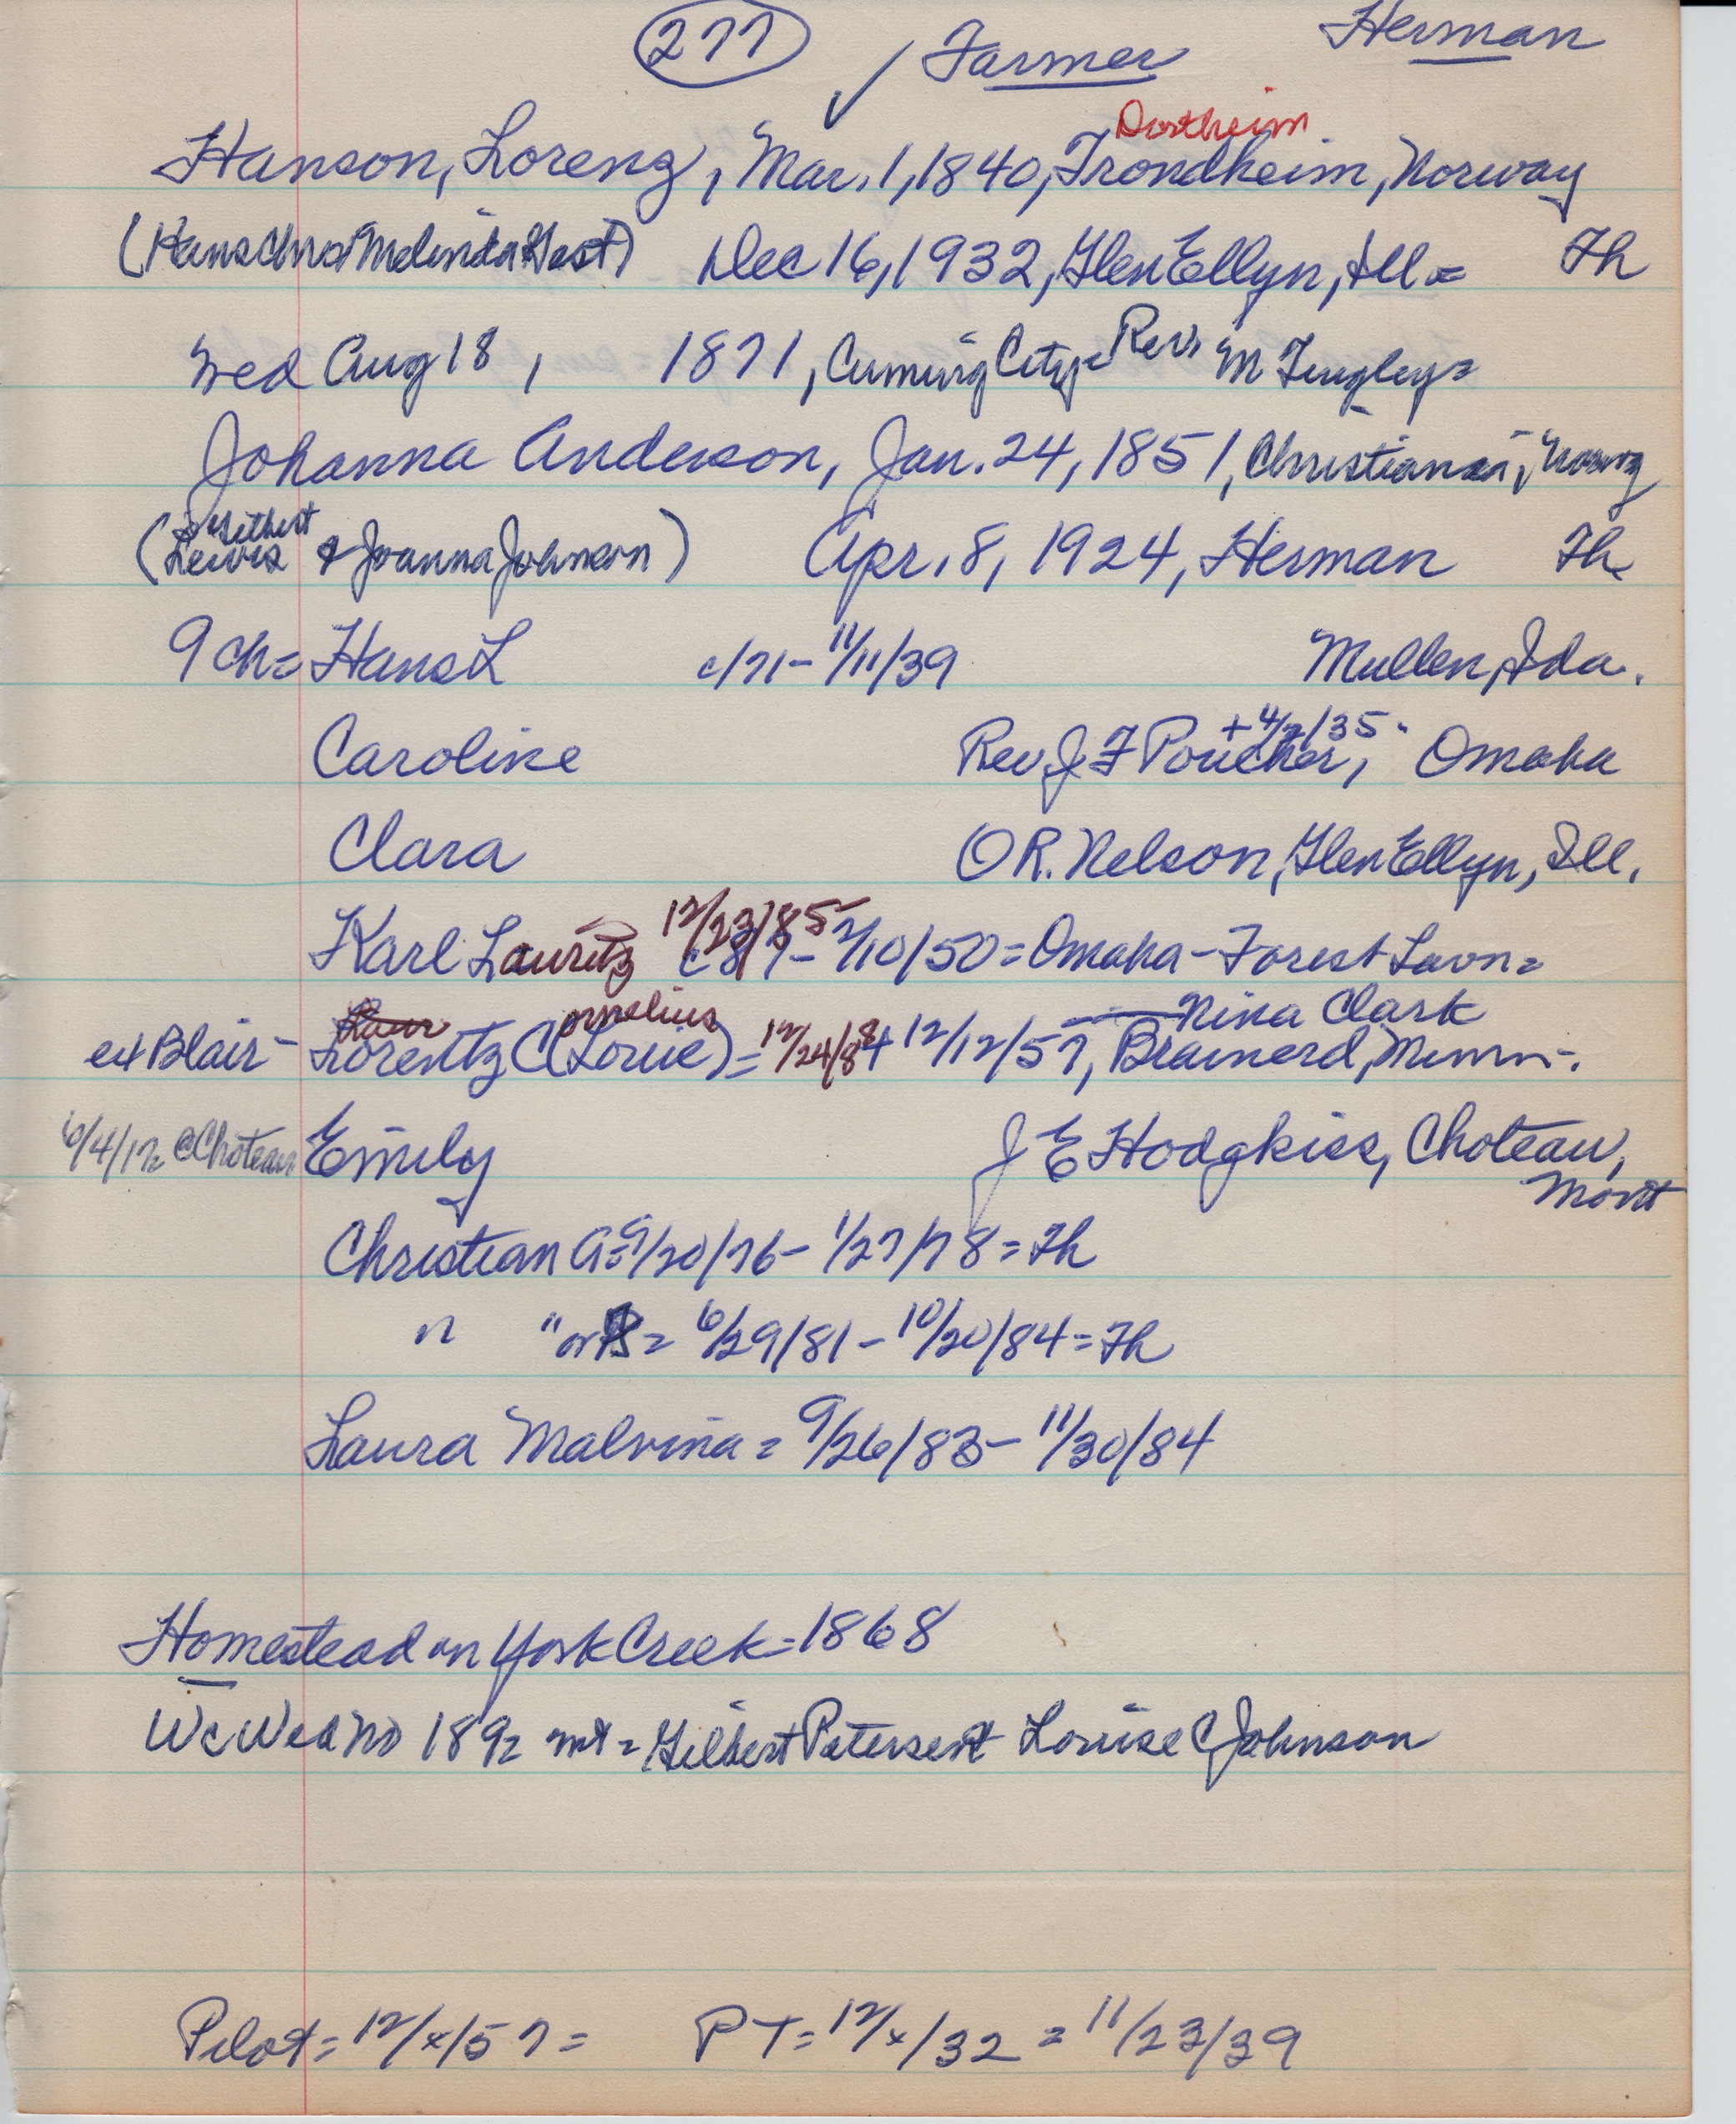 277 ✓ Farmer Herman
Dortheim
Hanson, Lorenz, Mar. 1, 1840, Trondheim, Norway
(Hans Chris Melinda Hast) Dec 16, 1932, Glen Ellyn, Ill = Fh
Wed Aug 18, 1871, Cuming City = Rev M Tingley =
Johanna Anderson, Jan. 24, 1851, Christiania, Norway
Gilbert
(Lewis & Joanna Johnson) Apr. 8, 1924, Herman Fh
9 ch = Hans L c/71 - 11/11/39 Mullen, Ida.
+ 4/2/35
Caroline Rev J F Poucher, Omaha
Clara O R. Nelson, Glen Ellyn, Ill.
12/23/85
Karl Lauritz c 87 - 2/10/50 = Omaha - Forest Lawn =
Nina Clark
ex Blair - Lorentz C (Cornelius) (Louie) = 12/24/88 + 12/12/57, Brainerd, Minn.
6/4/12 @ Choteau Emily J E Hodgkiss, Choteau,
Mont
Christian A = 9/20/76 - 1/27/78 = Fh
" " or B = 6/29/81 - 10/20/84 = Fh
Laura Malvina = 9/26/83 - 11/30/84
Homestead on York Creek = 1868
Wc Wed No 1892 = Gilbert Petersen Louise C Johnson
Pilot = 12/x/57 = P T = 12/x/32 = 11/23/39